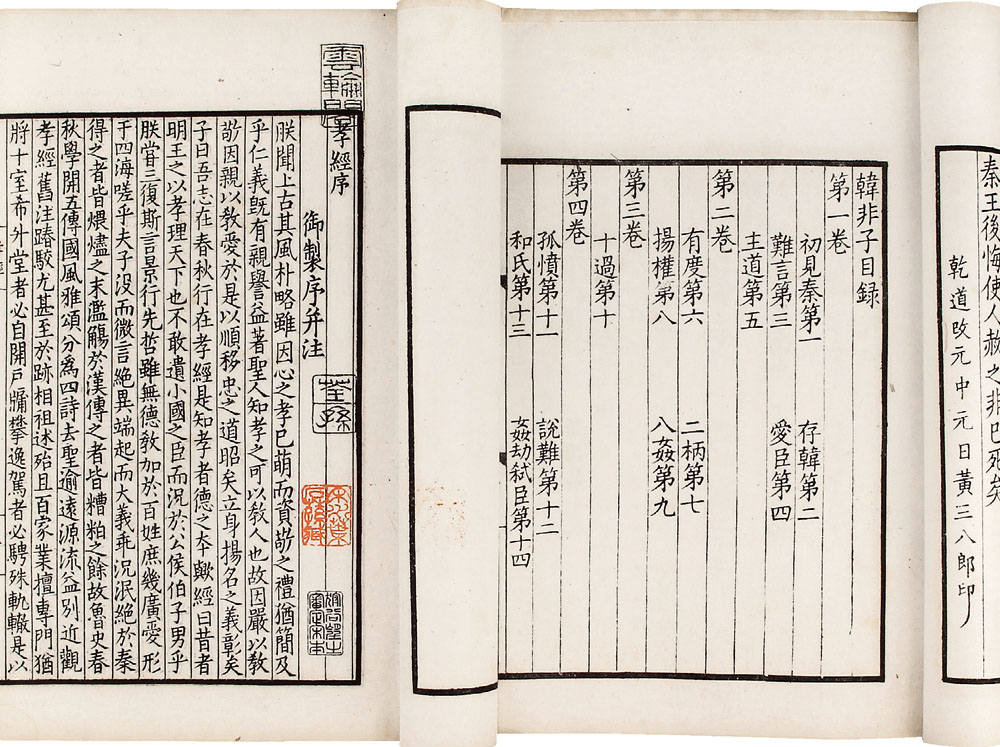 秦王後悔使人赦之非已死矣
乾道改元中元日黃三八郎印
韓非子目録
第一卷
初見秦第一 存韓第二
難言第三 愛臣第四
主道第五
第二卷
有度第六 二柄第七
揚權第八 八姦第九
第三卷
十過第十
第四卷
孤憤第十一 說難第十二
和氏第十三 姦劫弑臣第十四
雲輪閣
孝經序
御製序并注
荃孫
朕聞上古其風朴略雖因心之孝已萌而資敬之禮猶簡及
乎仁義既有親譽益著聖人知孝之可以教人也故因嚴以教
敬因親以教愛於是以順移忠之道昭矣立身揚名之義彰矣
子曰吾志在春秋行在孝經是知孝者德之本歟經曰昔者
明王之以孝理天下也不敢遺小國之臣而況於公侯伯子男乎
朕嘗三復斯言景行先哲雖無德教加於百姓庶幾廣愛形
于四海嗟乎夫子没而微言絶異端起而大義乖況泯絶於秦
得之者皆煨燼之末濫觴於漢傳之者皆糟粕之餘故魯史春
秋學開五傳國風雅頌分為四詩去聖逾遠源流益別近觀
孝經舊注踳駮尤甚至於跡相祖述殆且百家業擅專門猶
將十室希升堂者必自開戸牖攀逸駕者必騁殊軌轍是以